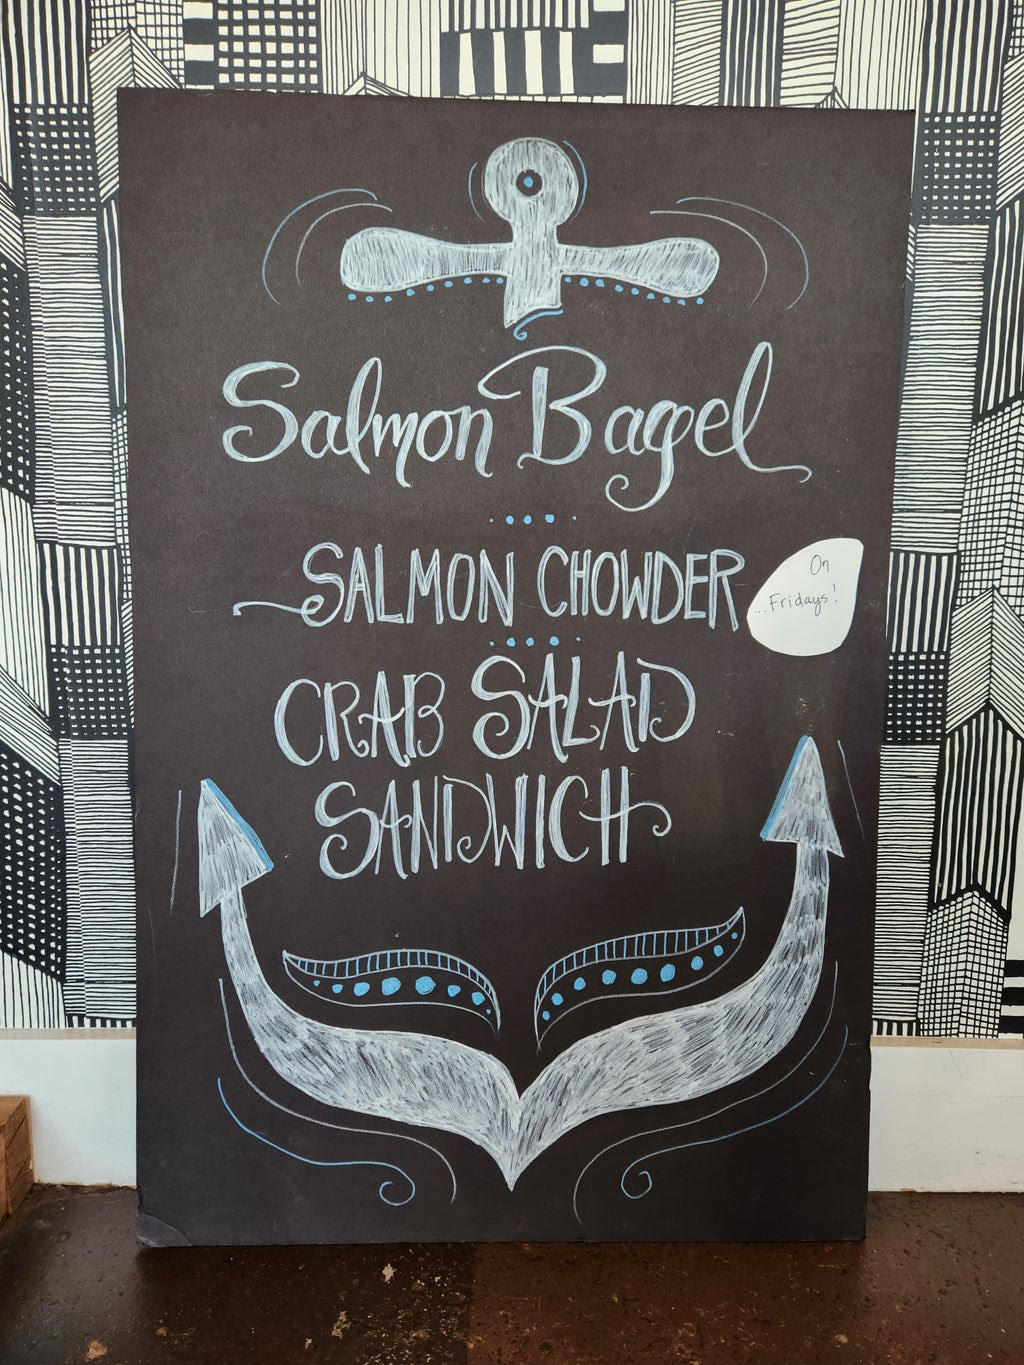 Salmon Bagel
SALMON CHOWDER
On
...Fridays!
CRAB SALAD
SANDWICH